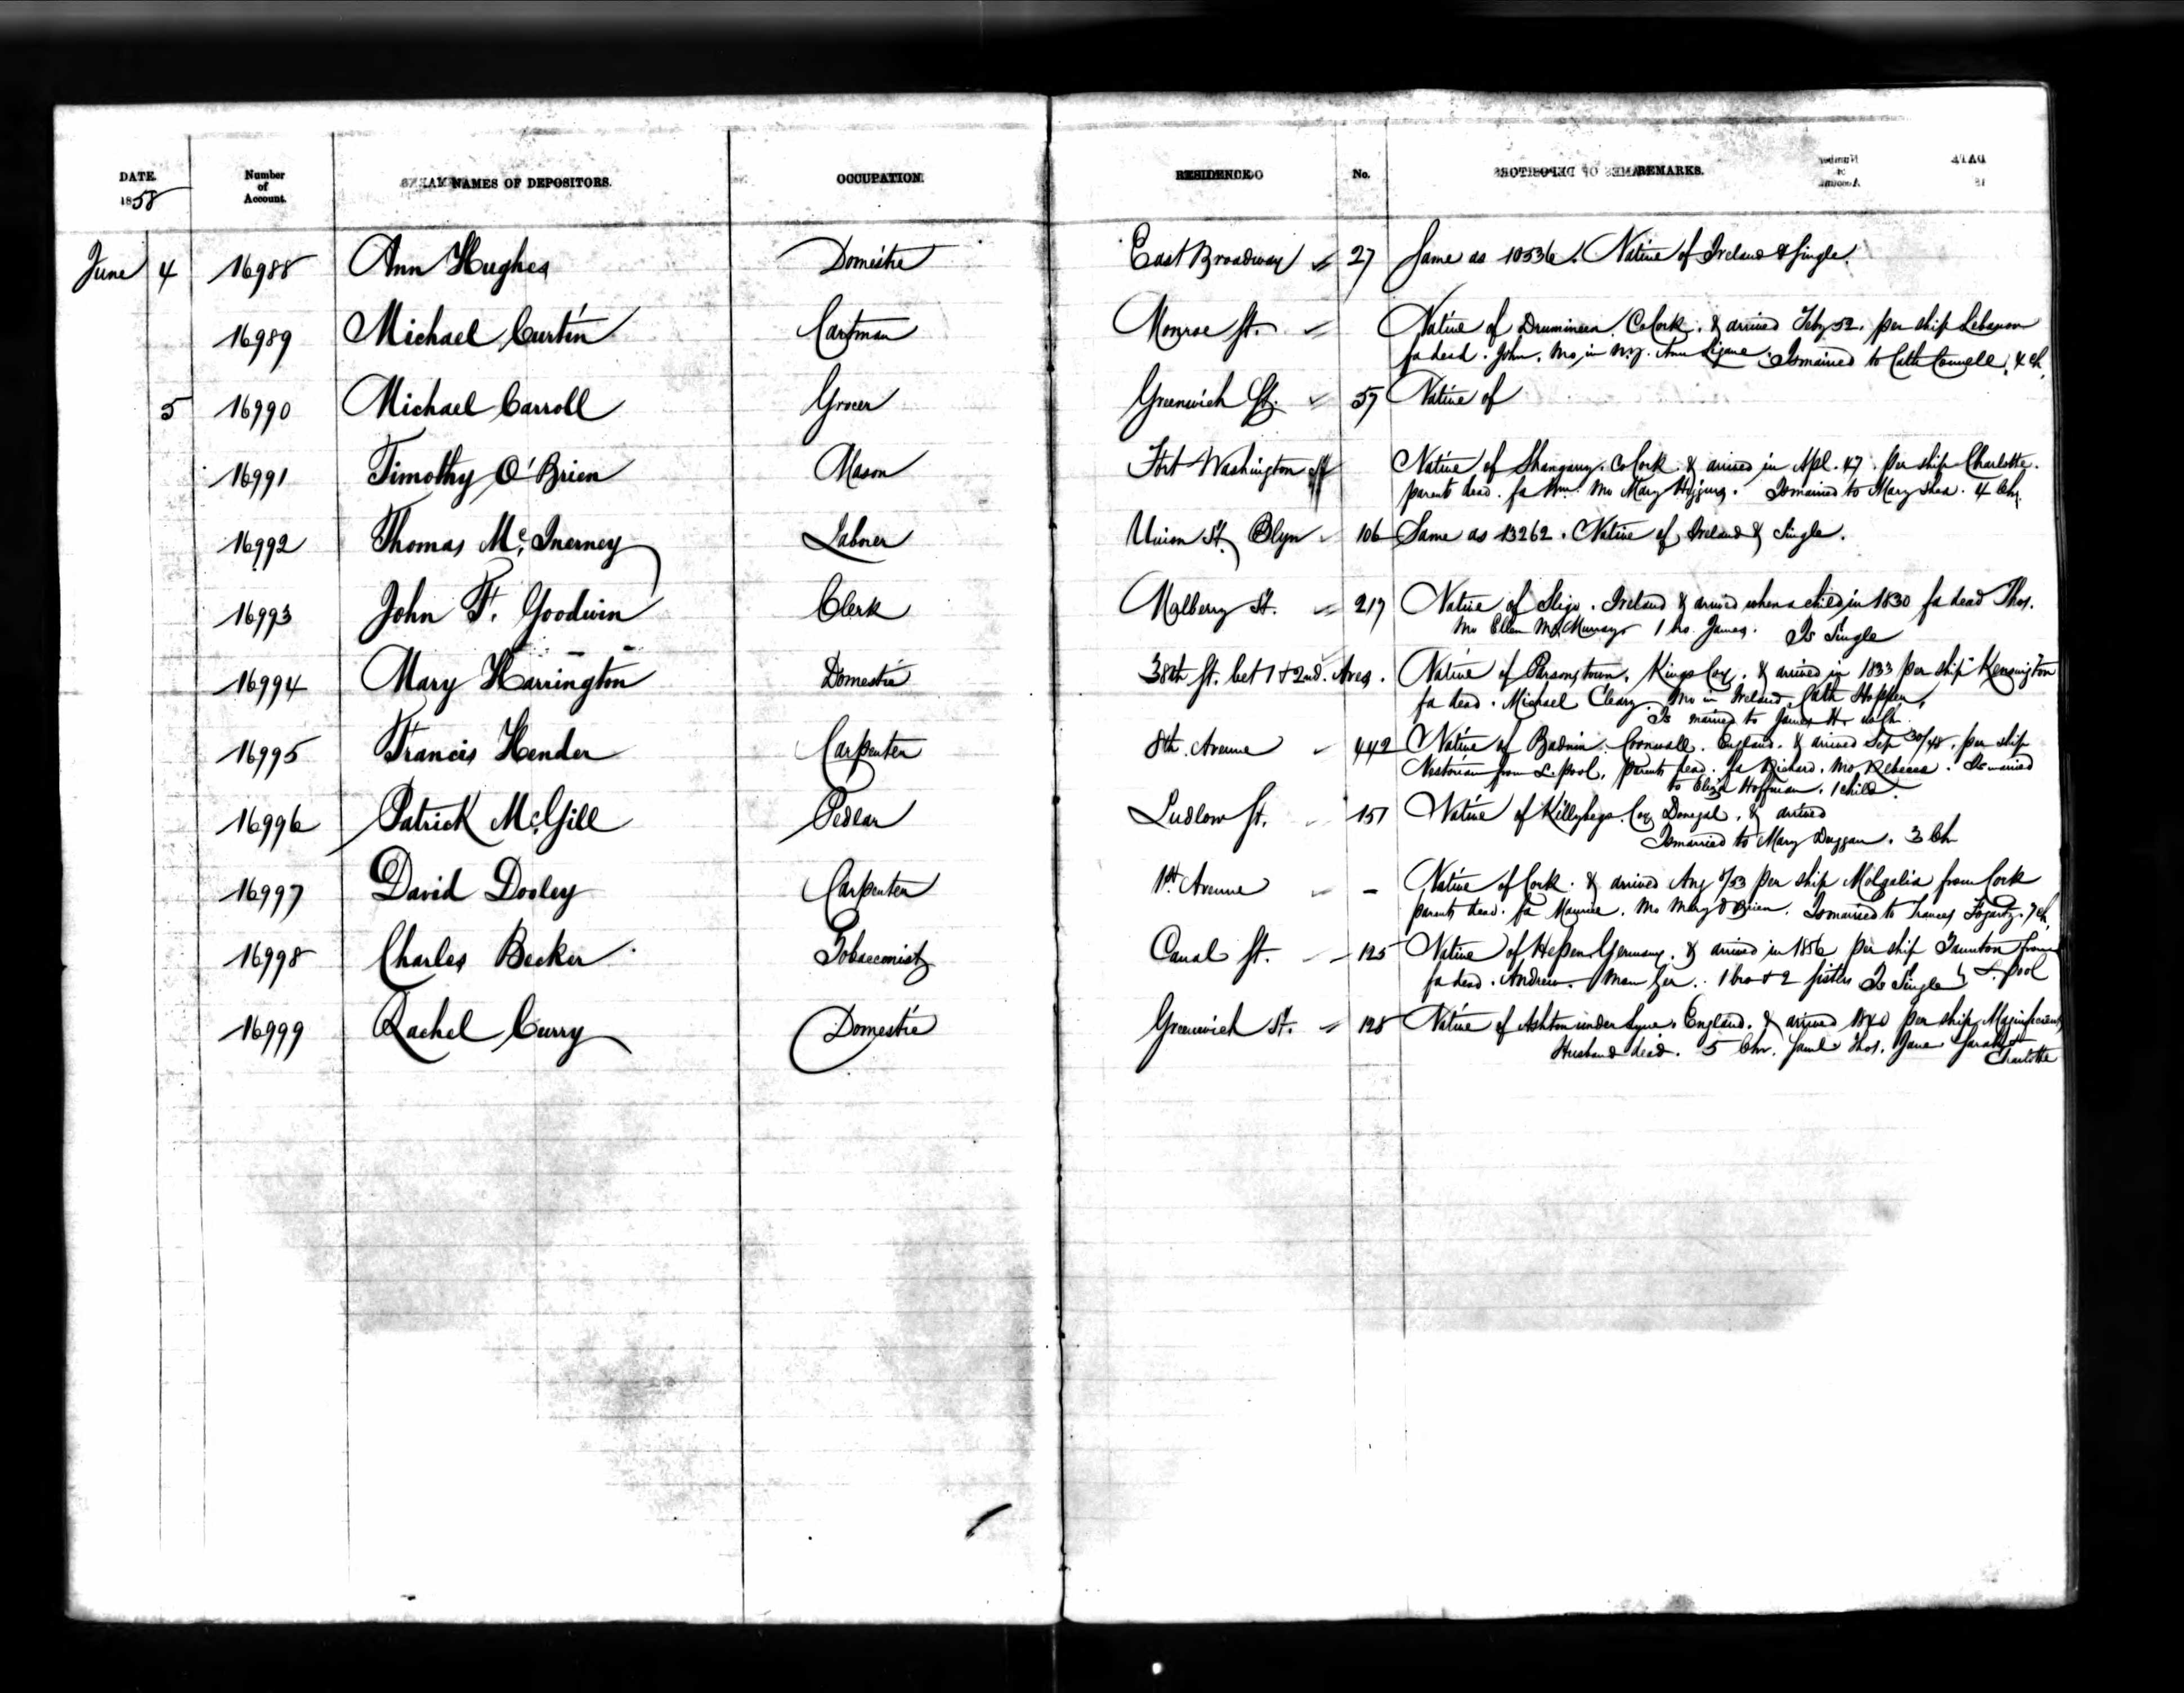 DATE. Number of Account. NAMES OF DEPOSITORS. OCCUPATION. RESIDENCE. No. REMARKS.
1858
June 4 16988 Ann Hughes Domestic East Broadway 27 Same as 10536. Native of Ireland & Single.
16989 Michael Curtin Cartman Monroe St. Native of Co Cork. & arrived Feby 52. per ship Lebanon
fa dead. John. Mo, in N.Y. Ann Is married to Cath Connell. 4 ch.
5 16990 Michael Carroll Grocer Greenwich St. 57 Native of
16991 Timothy O'Brien Mason Fort Washington Native of Shangarry. Co Cork. & arrived in Apl. 47. per ship Charlotte.
parents dead. fa Wm. Mo Mary Higgins. Is married to Mary Shea. 4 Ch.
16992 Thomas McInerney Laborer Union St. Blyn 106 Same as 13262. Native of Ireland & Single.
16993 John F. Goodwin Clerk Mulberry St. 217 Native of Sligo. Ireland & arrived when a child in 1830 fa dead Thos.
Mo Ellen McMurray 1 bro. James. Is Single
16994 Mary Harrington Domestic 38th St. bet 1 & 2nd. Aves. Native of Parsonstown. Kings Coy. & arrived in 1833 per ship Kensington
fa dead. Michael Cleary. Mo in Ireland. Cath
Is married to James H. no Ch.
16995 Francis Hender Carpenter 8th. Avenue 442 Native of Bodmin. Cornwall. England. & arrived Sep 30/48. per ship
Nestorian from L.pool. parents dead. fa Richard. Mo Rebecca. Is married
to Eliza Hoffman. 1 child.
16996 Patrick McGill Pedlar Ludlow St. 151 Native of Killybegs. Coy Donegal. & arrived
Is married to Mary Duggan. 3 Ch
16997 David Dooley Carpenter 1st. Avenue - Native of Cork. & arrived Aug 8/53 per ship from Cork
parents dead. fa Maurice. Mo Mary O'Brien. Is married to Frances Fogarty. 7 ch.
16998 Charles Becker Tobacconist Canal St. 125 Native of Hessen Germany. & arrived in 1856 per ship Taunton from
fa dead. Andrew. Mo in Ger. 1 bro & 2 sisters Is Single L.pool
16999 Rachel Curry Domestic Greenwich St. 128 Native of Ashton under Lyne. England. & arrived 1840 per ship Magnificent
Husband dead. 5 Chn. Saml Thos. Jane Sarah &
Charlotte